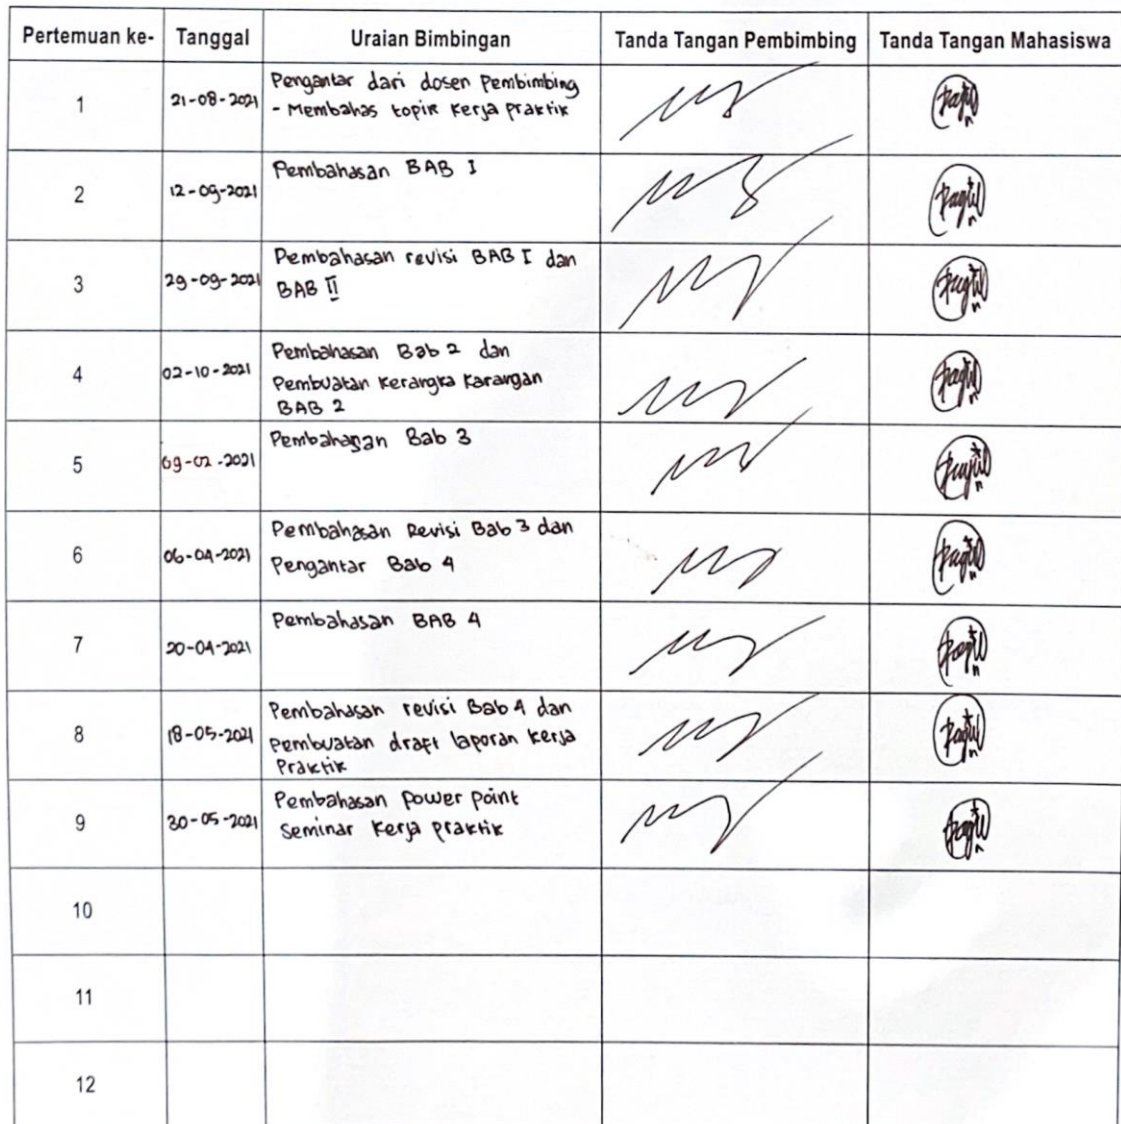 Pertemuan ke- Tanggal Uraian Bimbingan Tanda Tangan Pembimbing Tanda Tangan Mahasiswa
1 21-08-2021 Pengantar dari dosen Pembimbing
- Membahas topik kerja praktik
2 12-09-2021 Pembahasan BAB I
3 29-09-2021 Pembahasan revisi BAB I dan
BAB II
4 02-10-2021 Pembahasan Bab 2 dan
Pembuatan kerangka karangan
BAB 2
5 09-02-2021 Pembahasan Bab 3
6 06-04-2021 Pembahasan Revisi Bab 3 dan
Pengantar Bab 4
7 20-04-2021 Pembahasan BAB 4
8 18-05-2021 Pembahasan revisi Bab 4 dan
Pembuatan draft laporan kerja
Praktik
9 30-05-2021 Pembahasan power point
Seminar kerja praktik
10
11
12